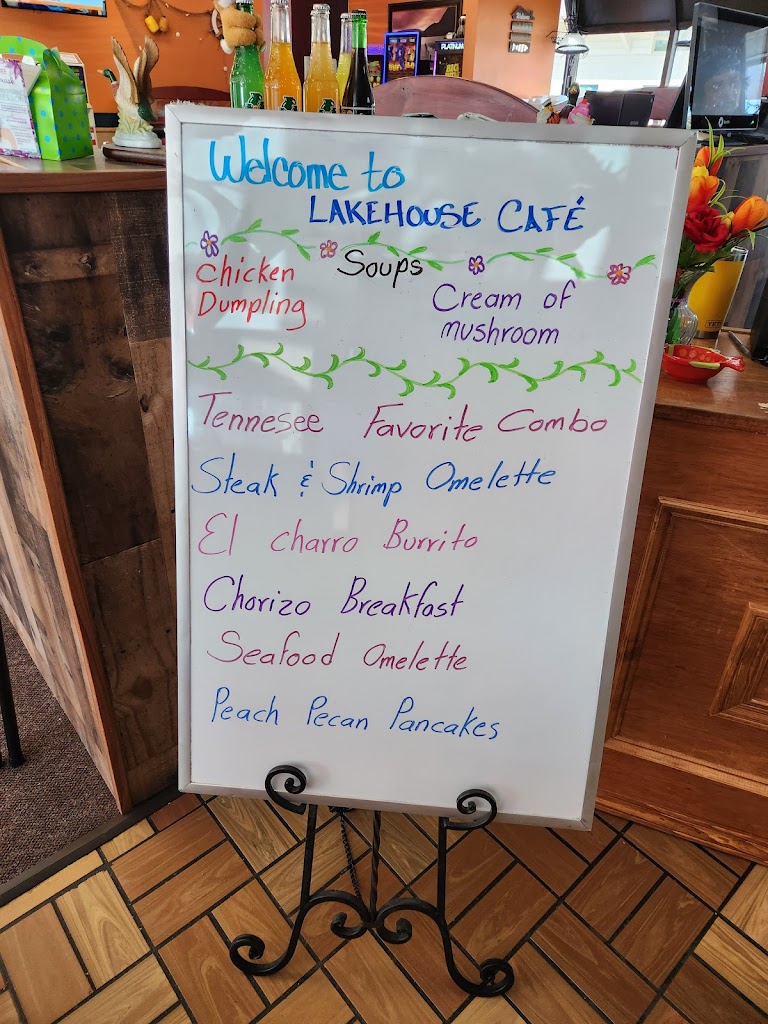 Welcome to
LAKEHOUSE CAFÉ
Soups
Chicken
Dumpling
Cream of
mushroom
Tennesee Favorite Combo
Steak & Shrimp Omelette
El charro Burrito
Chorizo Breakfast
Seafood Omelette
Peach Pecan Pancakes
PLATINUM